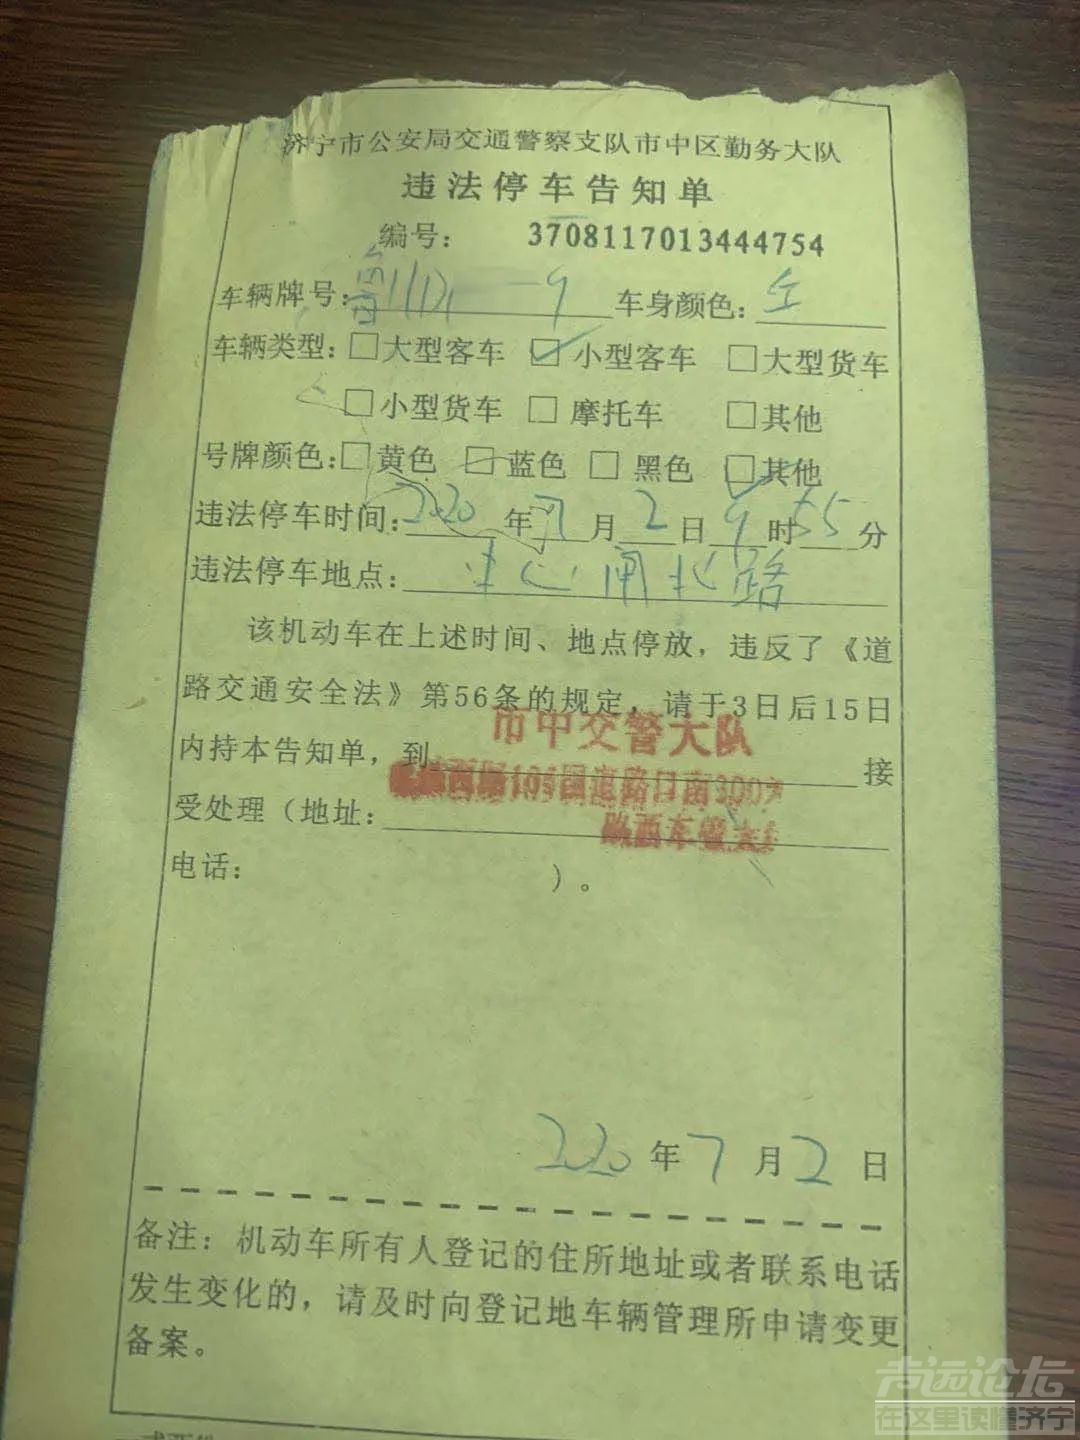 济宁市公安局交通警察支队市中区勤务大队
违法停车告知单
编号： 3708117013444754
车辆牌号：鲁 9 车身颜色：
车辆类型：□大型客车 ☑小型客车 □大型货车
□小型货车 □摩托车 □其他
号牌颜色：□黄色 □蓝色 □黑色 ☑其他
违法停车时间：2020年7月2日9时55分
违法停车地点： 闸北路
该机动车在上述时间、地点停放，违反了《道
路交通安全法》第56条的规定，请于3日后15日
市中交警大队
内持本告知单，到 接
国道路口南300
受处理（地址：
电话： ）。
2020年7月2日
备注：机动车所有人登记的住所地址或者联系电话
发生变化的，请及时向登记地车辆管理所申请变更
备案。
志远论坛
在这里读懂济宁